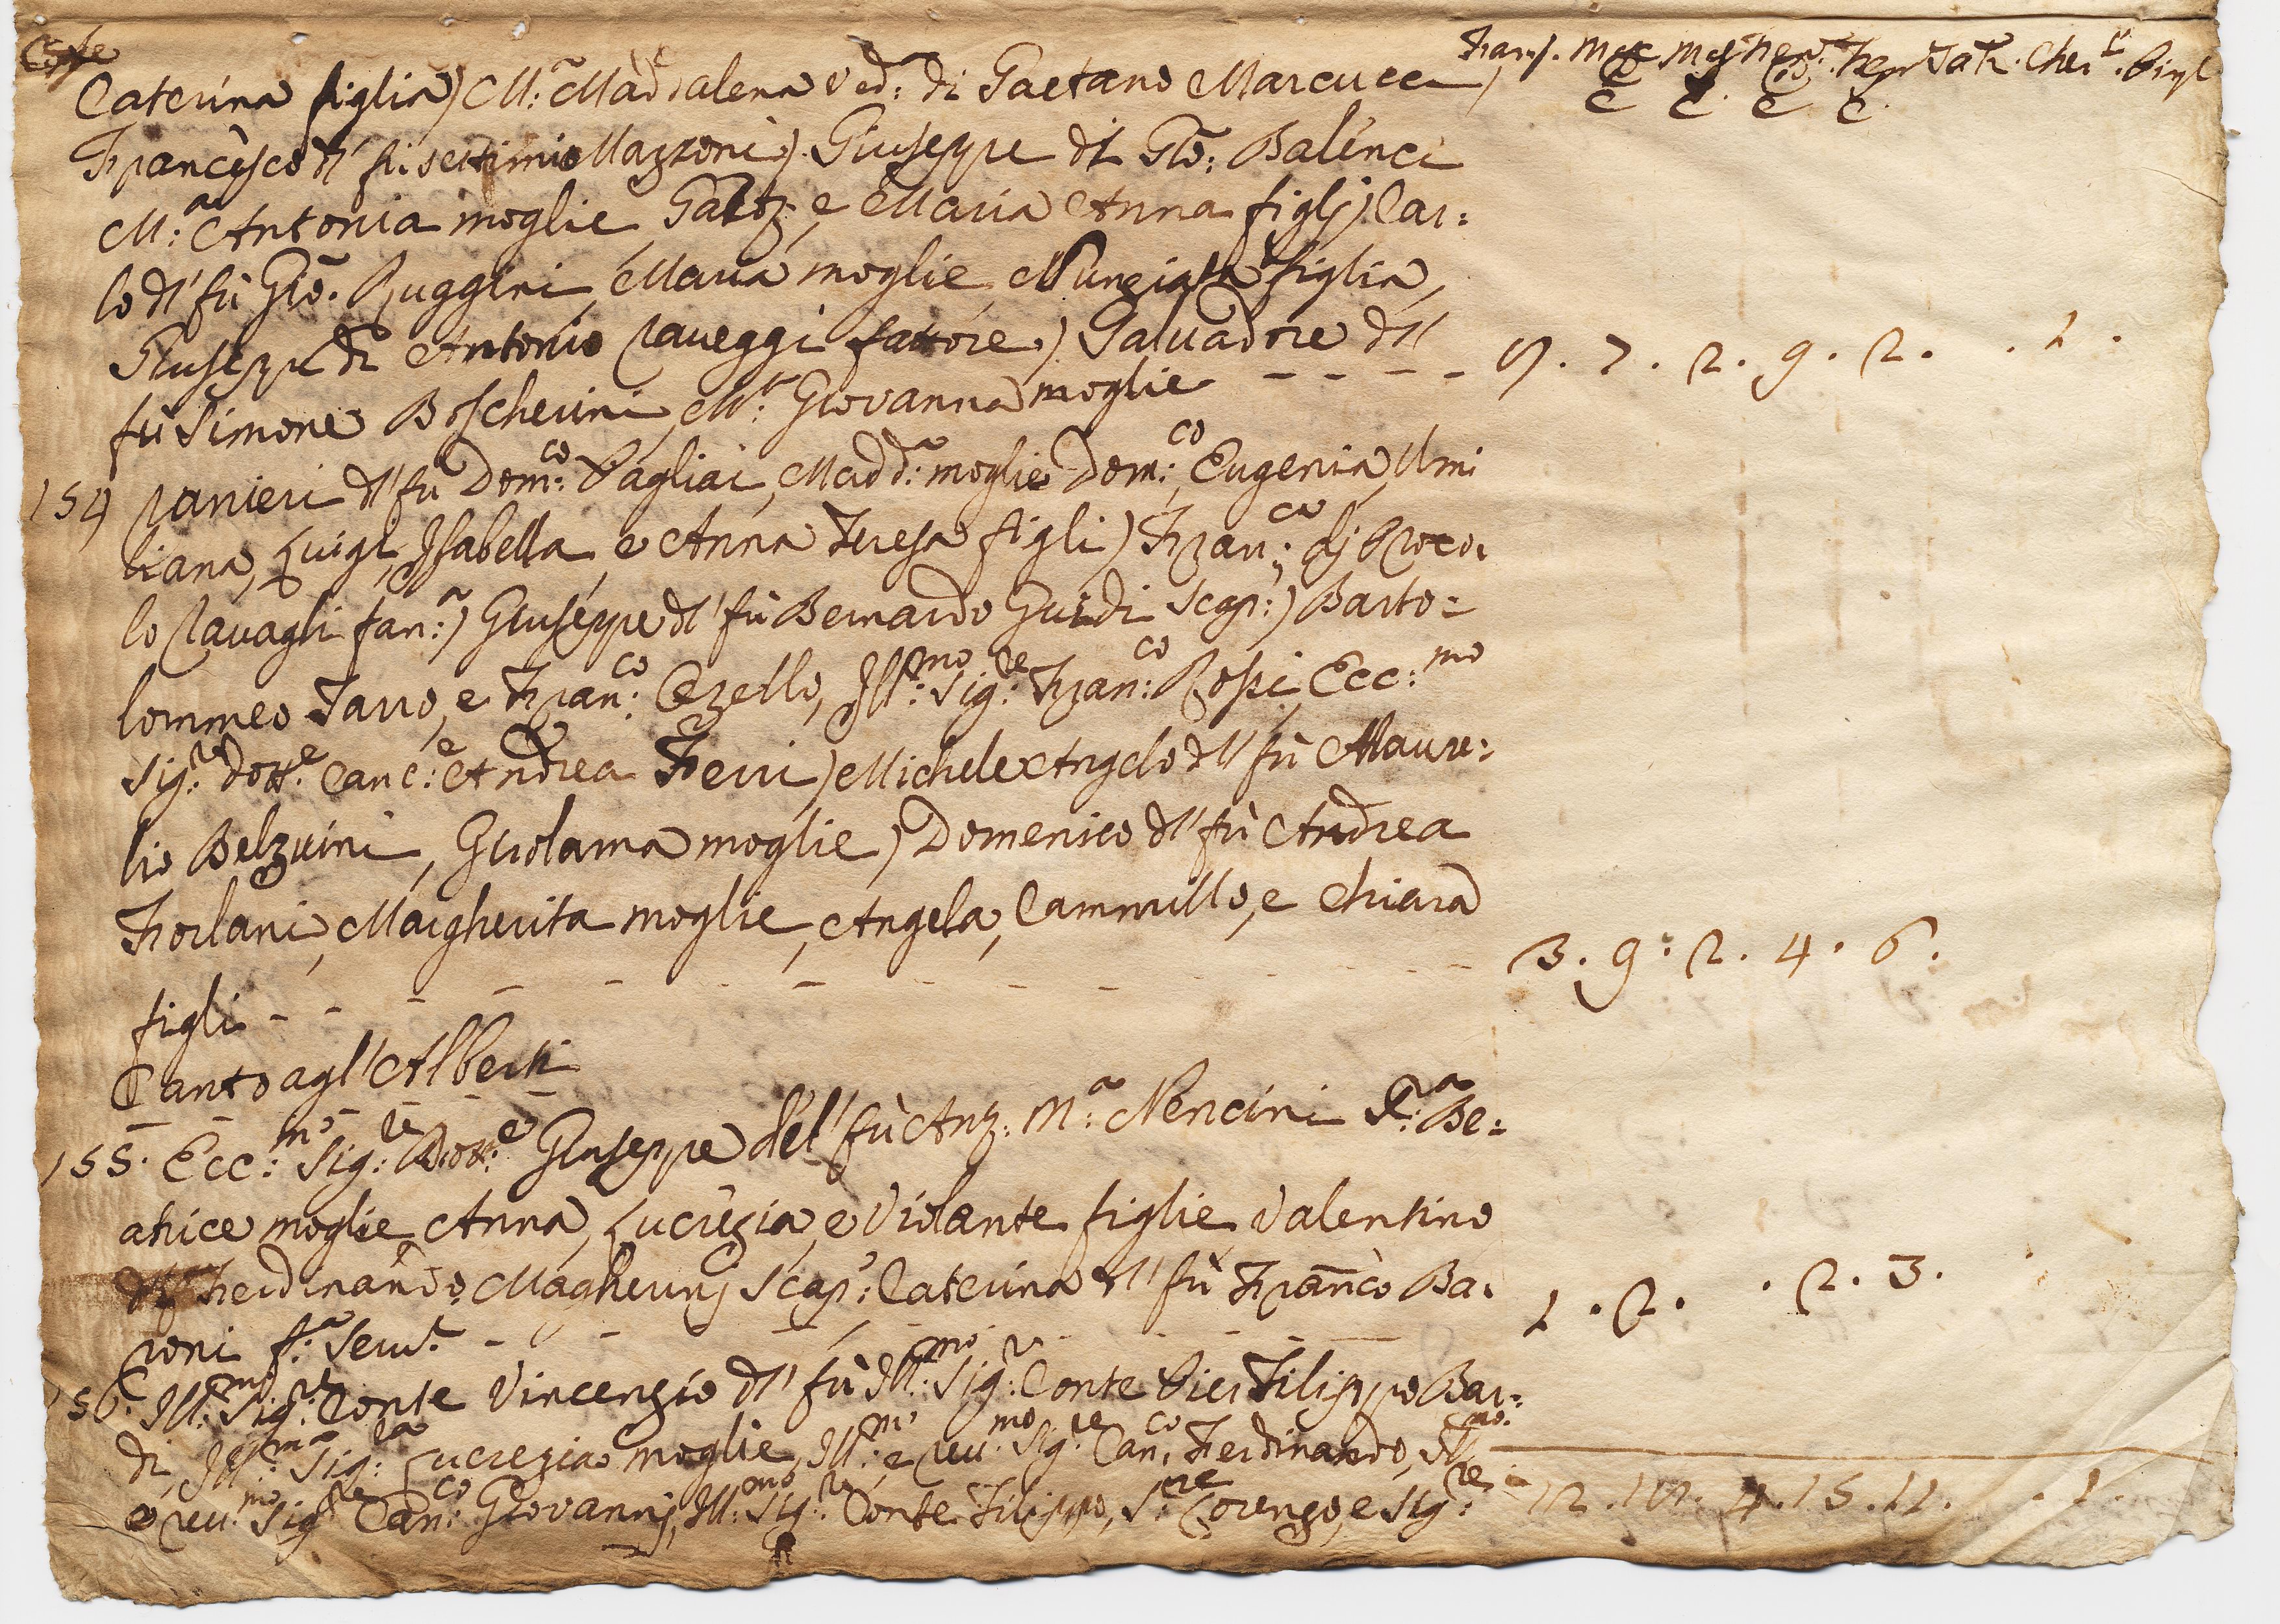 Case
Caterina figlia) M:a Mad:a dalena Ved: di Gaetano Marcucci
Francesco dl' fù settimio Mazzoni). Giuseppe di Gio: Balenci
M:a Antonia moglie, e Maria Anna figlj) Car:
lo dl' fù Gio. Ruggini, Maria moglie, Nunziata figlia,
Giuseppe di Antonio Raveggi fattore.) Salvadore dl'
fù Simone Boscherini, M:a Giovanna moglie - - - - 9. 7. 2. 9. 2. . 1.
154 Ranieri dl' fù Dom:co Pagliai, Madd:a moglie Dom:co, Eugenia, Umi
liana, Luigi, Isabella, e Anna Teresa figli) Fran:co di Proco.
lo Ravagli fan:a) Giuseppe dl' fù Bernardo Guidi Scap:) Barto=
lommeo Tarro, e Fran:co Ozello, Ill:mo Sig:re Fran:co Rossi, Ecc:mo
Sig:re Dott:e Canc:e Andrea Ferri) Michele Angelo dl' fù Maure:
lio Belzuini, Girolama moglie) Domenico dl' fù Andrea
Forlani, Margherita moglie, Angela, Cammillo, e Chiara
figli - - - - - - - - - - - - 3. 9: 2. 4. 6.
Canto agl' Alberti
155. Ecc:mo Sig:re Dott:e Giuseppe del' fù Anz: M:a Nencini S:ra Be=
atrice moglie, Anna, Lucrezia, e Violante figlie Valentino
dl' Ferdinando Magherinj Scap: Caterina dl' fù Franco Ba.
roni f:a Serv:a - - - - - - 1. 2. . 2. 3.
156. Ill:mo Sig:re Conte Vincenzio dl' fù Ill:mo Sig:r Conte Pier Filippo Bar=
di, Ill:ma Sig:ra Lucrezia moglie, Ill:mo e Reu:mo Sig:re Can:co Ferdinando, Ill:mo
e Reu:mo Sig:re Can:co Giovannj, Ill:mo Sig:r Conte Filippo, S:re Lorenzo, e Sig:re
12. 18. 4. 15. 11. . 1.